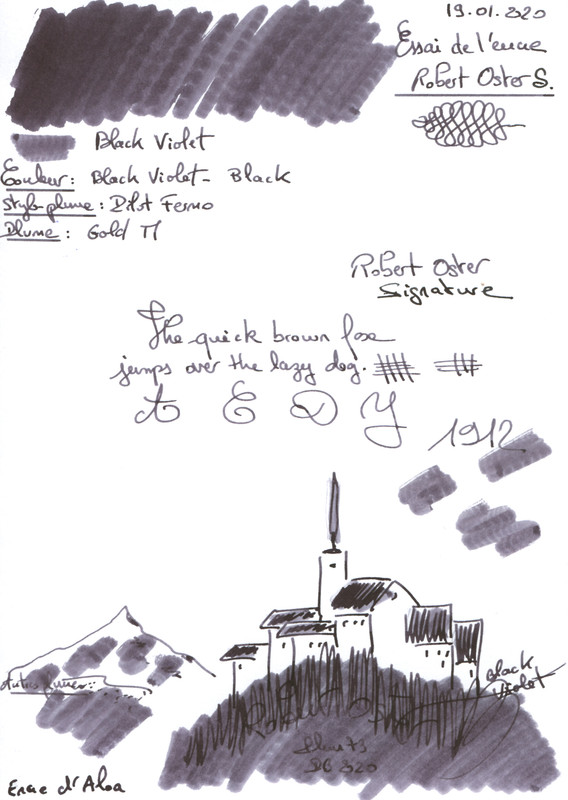 19.01.2020
Essai de l'encre
Robert Oster S.
Black Violet
Couleur: Black Violet - Black
Stylo-plume: Pilot Fermo
Plume: Gold M
Robert Oster
Signature
The quick brown fox
jumps over the lazy dog.
A E D Y
1912
Black
Violet
Encre d'Aloa